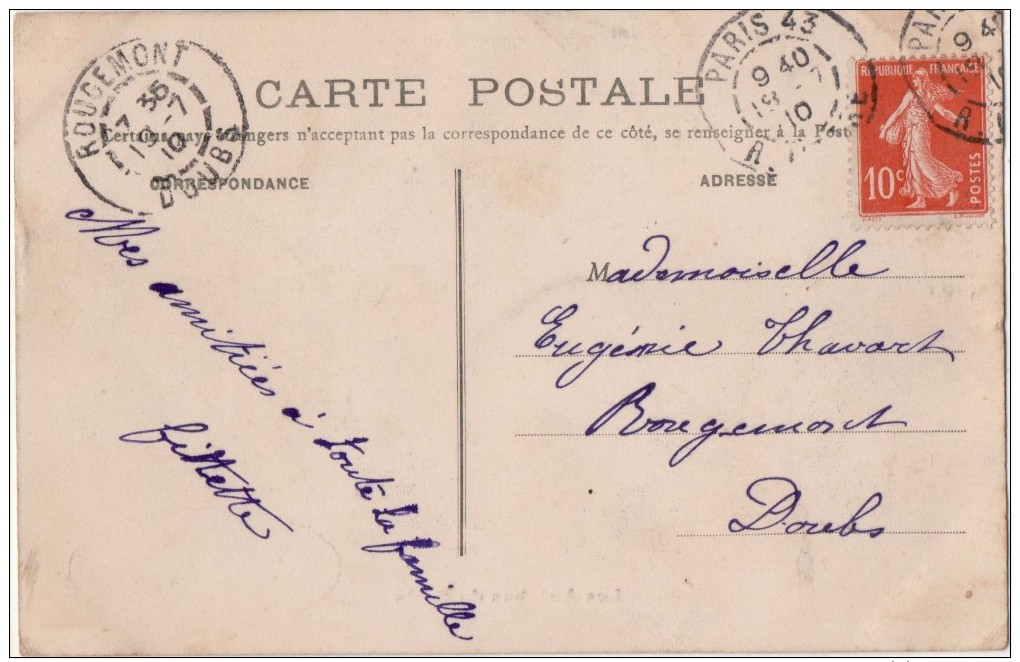 ROUGEMONT
7 35
19 -7
10
DOUBS
CARTE POSTALE
PARIS 43
9 40
19 -7
10
PAR
9 4
10
R.
RÉPUBLIQUE FRANÇAISE
10 c
POSTES
Certains pays étrangers n'acceptant pas la correspondance de ce côté, se renseigner à la Poste
CORRESPONDANCE
ADRESSE
Mes amitiés à toute la famille
Mademoiselle
Eugénie Thavart
Rougemont
Doubs